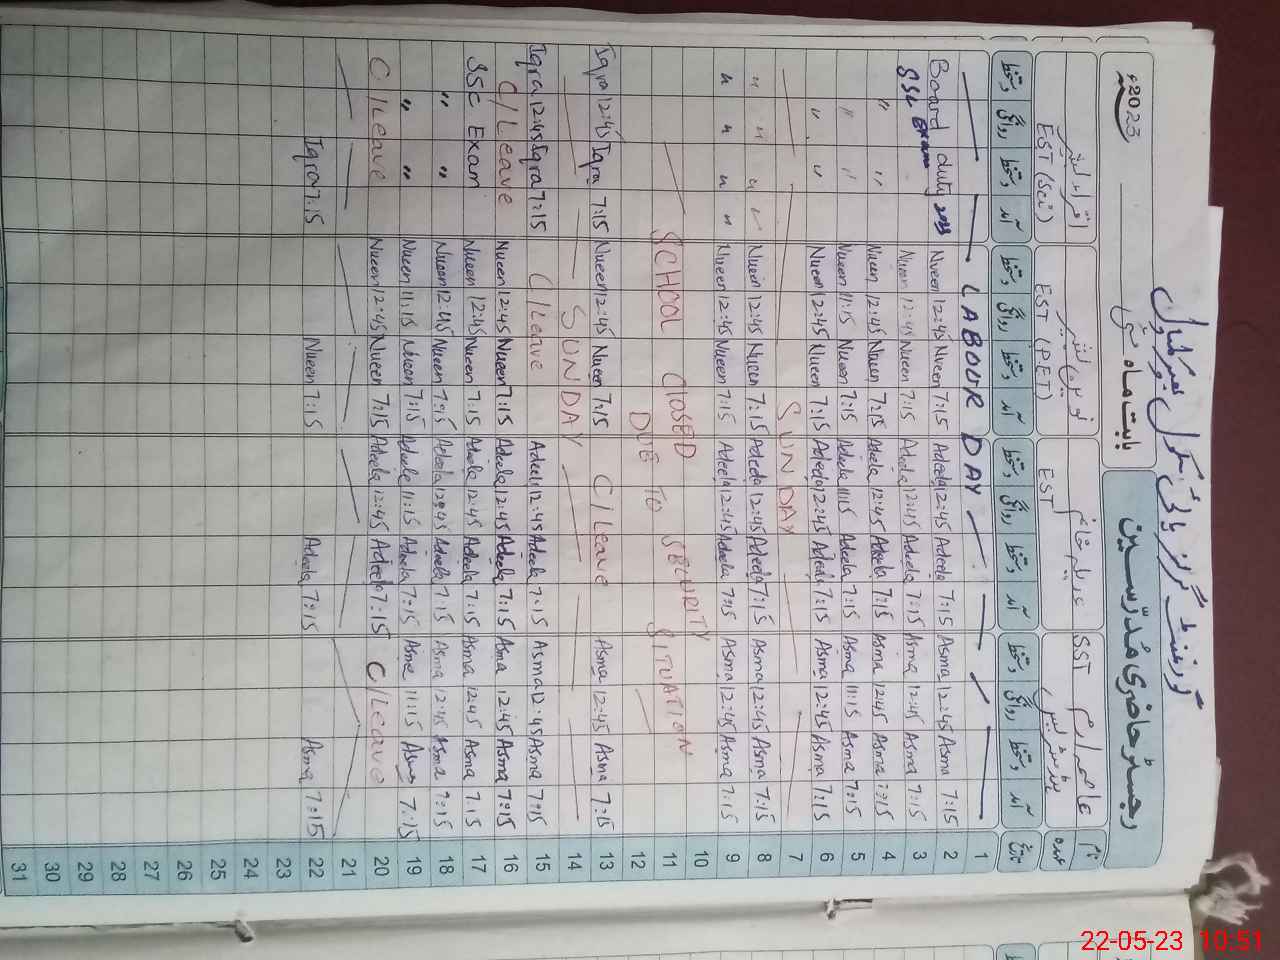 گورنمنٹ گرلز ہائی سکول
رجسٹر حاضری مُدرّسین بابت ماہ مئی 2023ء
نام عاصمہ ارم عدیلہ خانم نورین بشیر اقراء بشیر
عہدہ SST EST EST (P.E.T) EST (Sci)
تاریخ آمد دستخط روانگی دستخط آمد دستخط روانگی دستخط آمد دستخط روانگی دستخط آمد دستخط روانگی دستخط
LABOUR DAY 1
Board duty 2023 Nueen 12:45 Nueen 7:15 Adeela 12:45 Adeela 7:15 Asma 12:45 Asma 7:15 2
SSC Exam Nueen 12:45 Nueen 7:15 Adeela 12:45 Adeela 7:15 Asma 12:45 Asma 7:15 3
" " Nueen 12:45 Nueen 7:15 Adeela 12:45 Adeela 7:15 Asma 12:45 Asma 7:15 4
" " Nueen 11:15 Nueen 7:15 Adeela 11:15 Adeela 7:15 Asma 11:15 Asma 7:15 5
" " Nueen 12:45 Nueen 7:15 Adeela 12:45 Adeela 7:15 Asma 12:45 Asma 7:15 6
SUNDAY 7
" " " " Nueen 12:45 Nueen 7:15 Adeela 12:45 Adeela 7:15 Asma 12:45 Asma 7:15 8
" " " " Nueen 12:45 Nueen 7:15 Adeela 12:45 Adeela 7:15 Asma 12:45 Asma 7:15 9
10
SCHOOL CLOSED SECURITY SITUATION 11
DUE TO 12
Iqra 12:45 Iqra 7:15 Nueen 12:45 Nueen 7:15 C/Leave Asma 12:45 Asma 7:15 13
SUNDAY 14
Iqra 12:45 Iqra 7:15 C/Leave Adeela 12:45 Adeela 7:15 Asma 12:45 Asma 7:15 15
C/Leave Nueen 12:45 Nueen 7:15 Adeela 12:45 Adeela 7:15 Asma 12:45 Asma 7:15 16
SSC Exam Nueen 12:45 Nueen 7:15 Adeela 12:45 Adeela 7:15 Asma 12:45 Asma 7:15 17
" " Nueen 12:45 Nueen 7:15 Adeela 12:45 Adeela 7:15 Asma 12:45 Asma 7:15 18
" " Nueen 11:15 Nueen 7:15 Adeela 11:15 Adeela 7:15 Asma 11:15 Asma 7:15 19
C/Leave Nueen 12:45 Nueen 7:15 Adeela 12:45 Adeela 7:15 C/Leave 20
21
Iqra 7:15 Nueen 7:15 Adeela 7:15 Asma 7:15 22
23
24
25
26
27
28
29
30
31
22-05-23 10:51